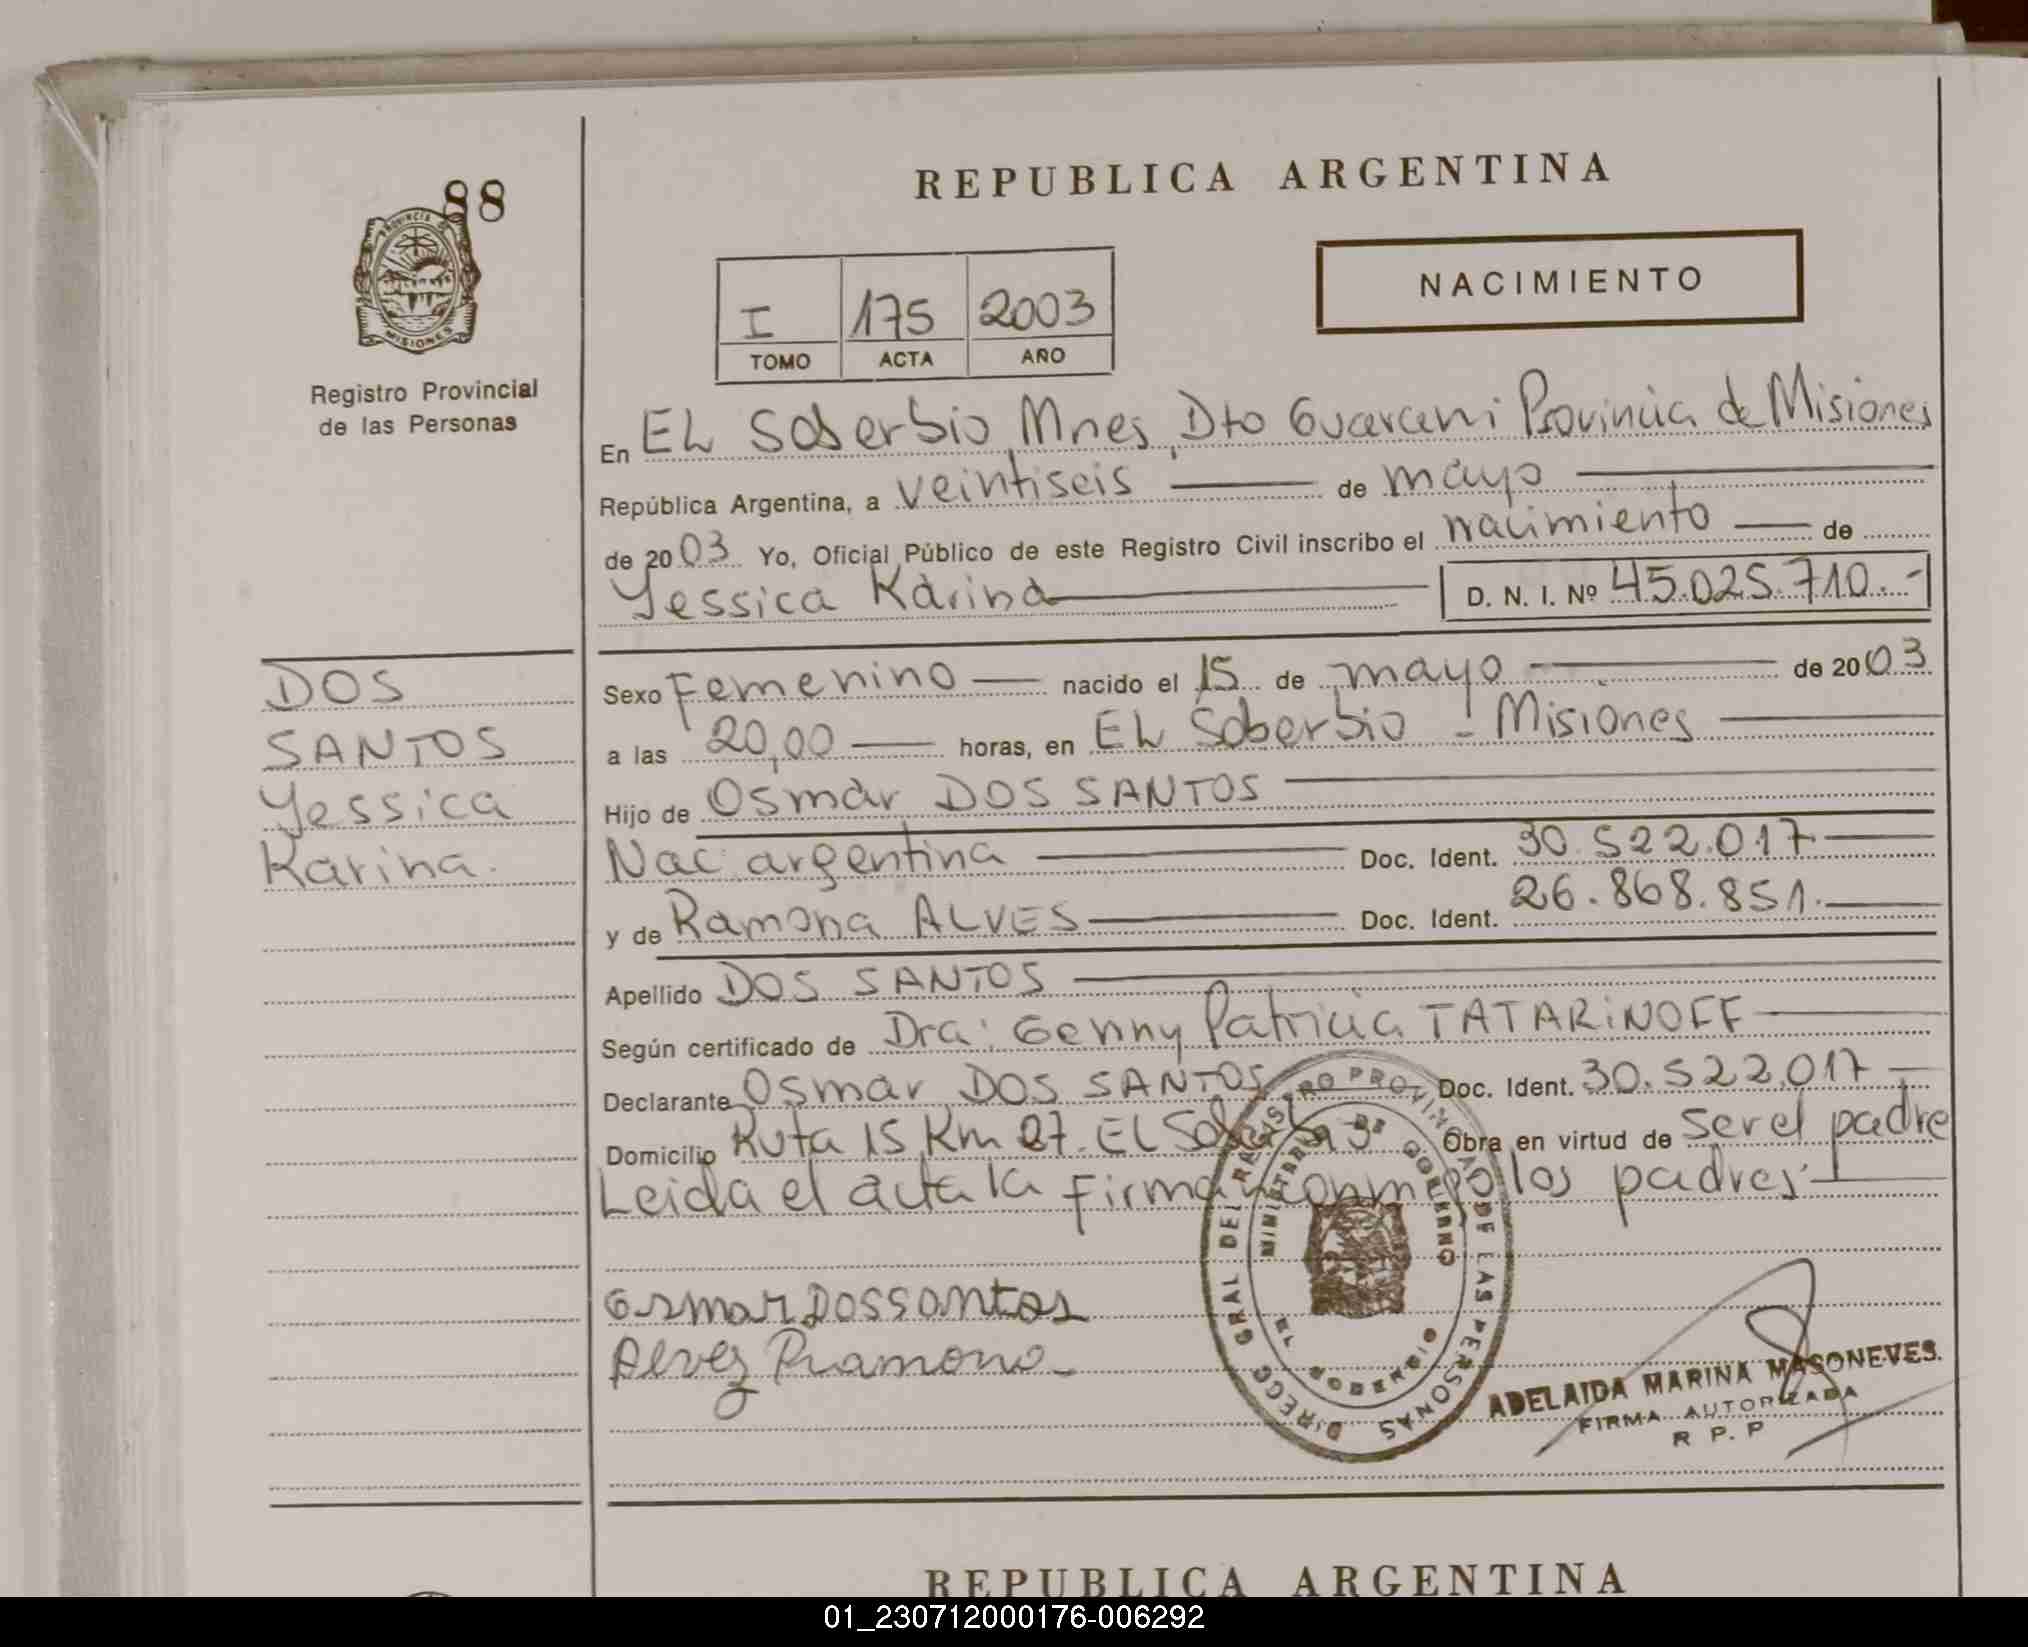 88
PROVINCIA DE
MISIONES
Registro Provincial
de las Personas
DOS
SANTOS
Yessica
Karina.
REPUBLICA ARGENTINA
NACIMIENTO
I 175 2003
TOMO ACTA AÑO
En EL Soberbio, Mnes, Dto Guarani Provincia de Misiones
República Argentina, a veintiseis de mayo
de 2003 Yo, Oficial Público de este Registro Civil inscribo el nacimiento de
Yessica Karina D. N. I. Nº 45.025.710.-
Sexo Femenino nacido el 15 de mayo de 2003
a las 20,00 horas, en EL Soberbio - Misiones
Hijo de Osmar DOS SANTOS
Nac: argentina Doc. Ident. 30.522.017
y de Ramona ALVES Doc. Ident. 26.868.851.
Apellido DOS SANTOS
Según certificado de Dra: Genny Patricia TATARINOFF
Declarante Osmar DOS SANTOS Doc. Ident. 30.522.017
Domicilio Ruta 15 Km 27. EL Soberbio Obra en virtud de ser el padre
Leida el acta la firman conmigo los padres.
Osmar Dossantos
Alvez Ramona
DIRECC GRAL DEL REGISTRO PROVINCIAL DE LAS PERSONAS
MINISTERIO DE GOBIERNO
ADELAIDA MARINA MASONEVES
FIRMA AUTORIZADA
R P. P
REPUBLICA ARGENTINA
01_230712000176-006292